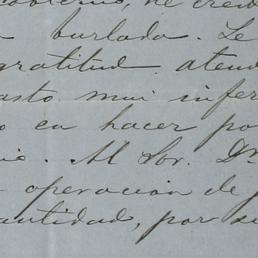 he creido
burlado. Le
gratitud atend
asto mui infer
o en hacer po
io. Al Sor. Dn
operacion de
cantidad, por su